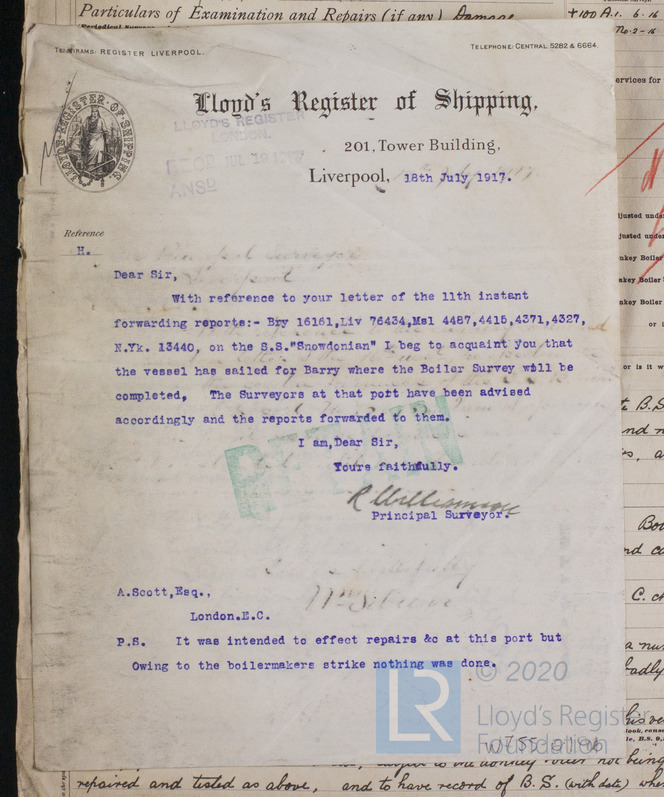 Particulars of Examination and Repairs (if any) Damage
+100 A.1. 6.16
TELEGRAMS: REGISTER LIVERPOOL.
TELEPHONE: CENTRAL 5282 & 6664.
Lloyd's Register of Shipping,
LLOYD'S REGISTER OF SHIPPING
LLOYD'S REGISTER
LONDON.
RECD JUL 19 1917
ANSD
201, Tower Building,
Liverpool, 18th July 1917.
Reference
H.
Dear Sir,
With reference to your letter of the 11th instant
forwarding reports:- Bry 16161,Liv 76434,Msl 4487,4415,4371,4327,
N.Yk. 13440, on the S.S."Snowdonian" I beg to acquaint you that
the vessel has sailed for Barry where the Boiler Survey will be
completed, The Surveyors at that port have been advised
accordingly and the reports forwarded to them.
I am,Dear Sir,
Yours faithfully.
RETAIN
R Williamson
Principal Surveyor.
A.Scott,Esq.,
London.E.C.
P.S. It was intended to effect repairs &c at this port but
Owing to the boilermakers strike nothing was done.
LR
© 2020
Lloyd's Register
Foundation
W755-0196
repaired and tested as above, and to have record of B.S. (with date)